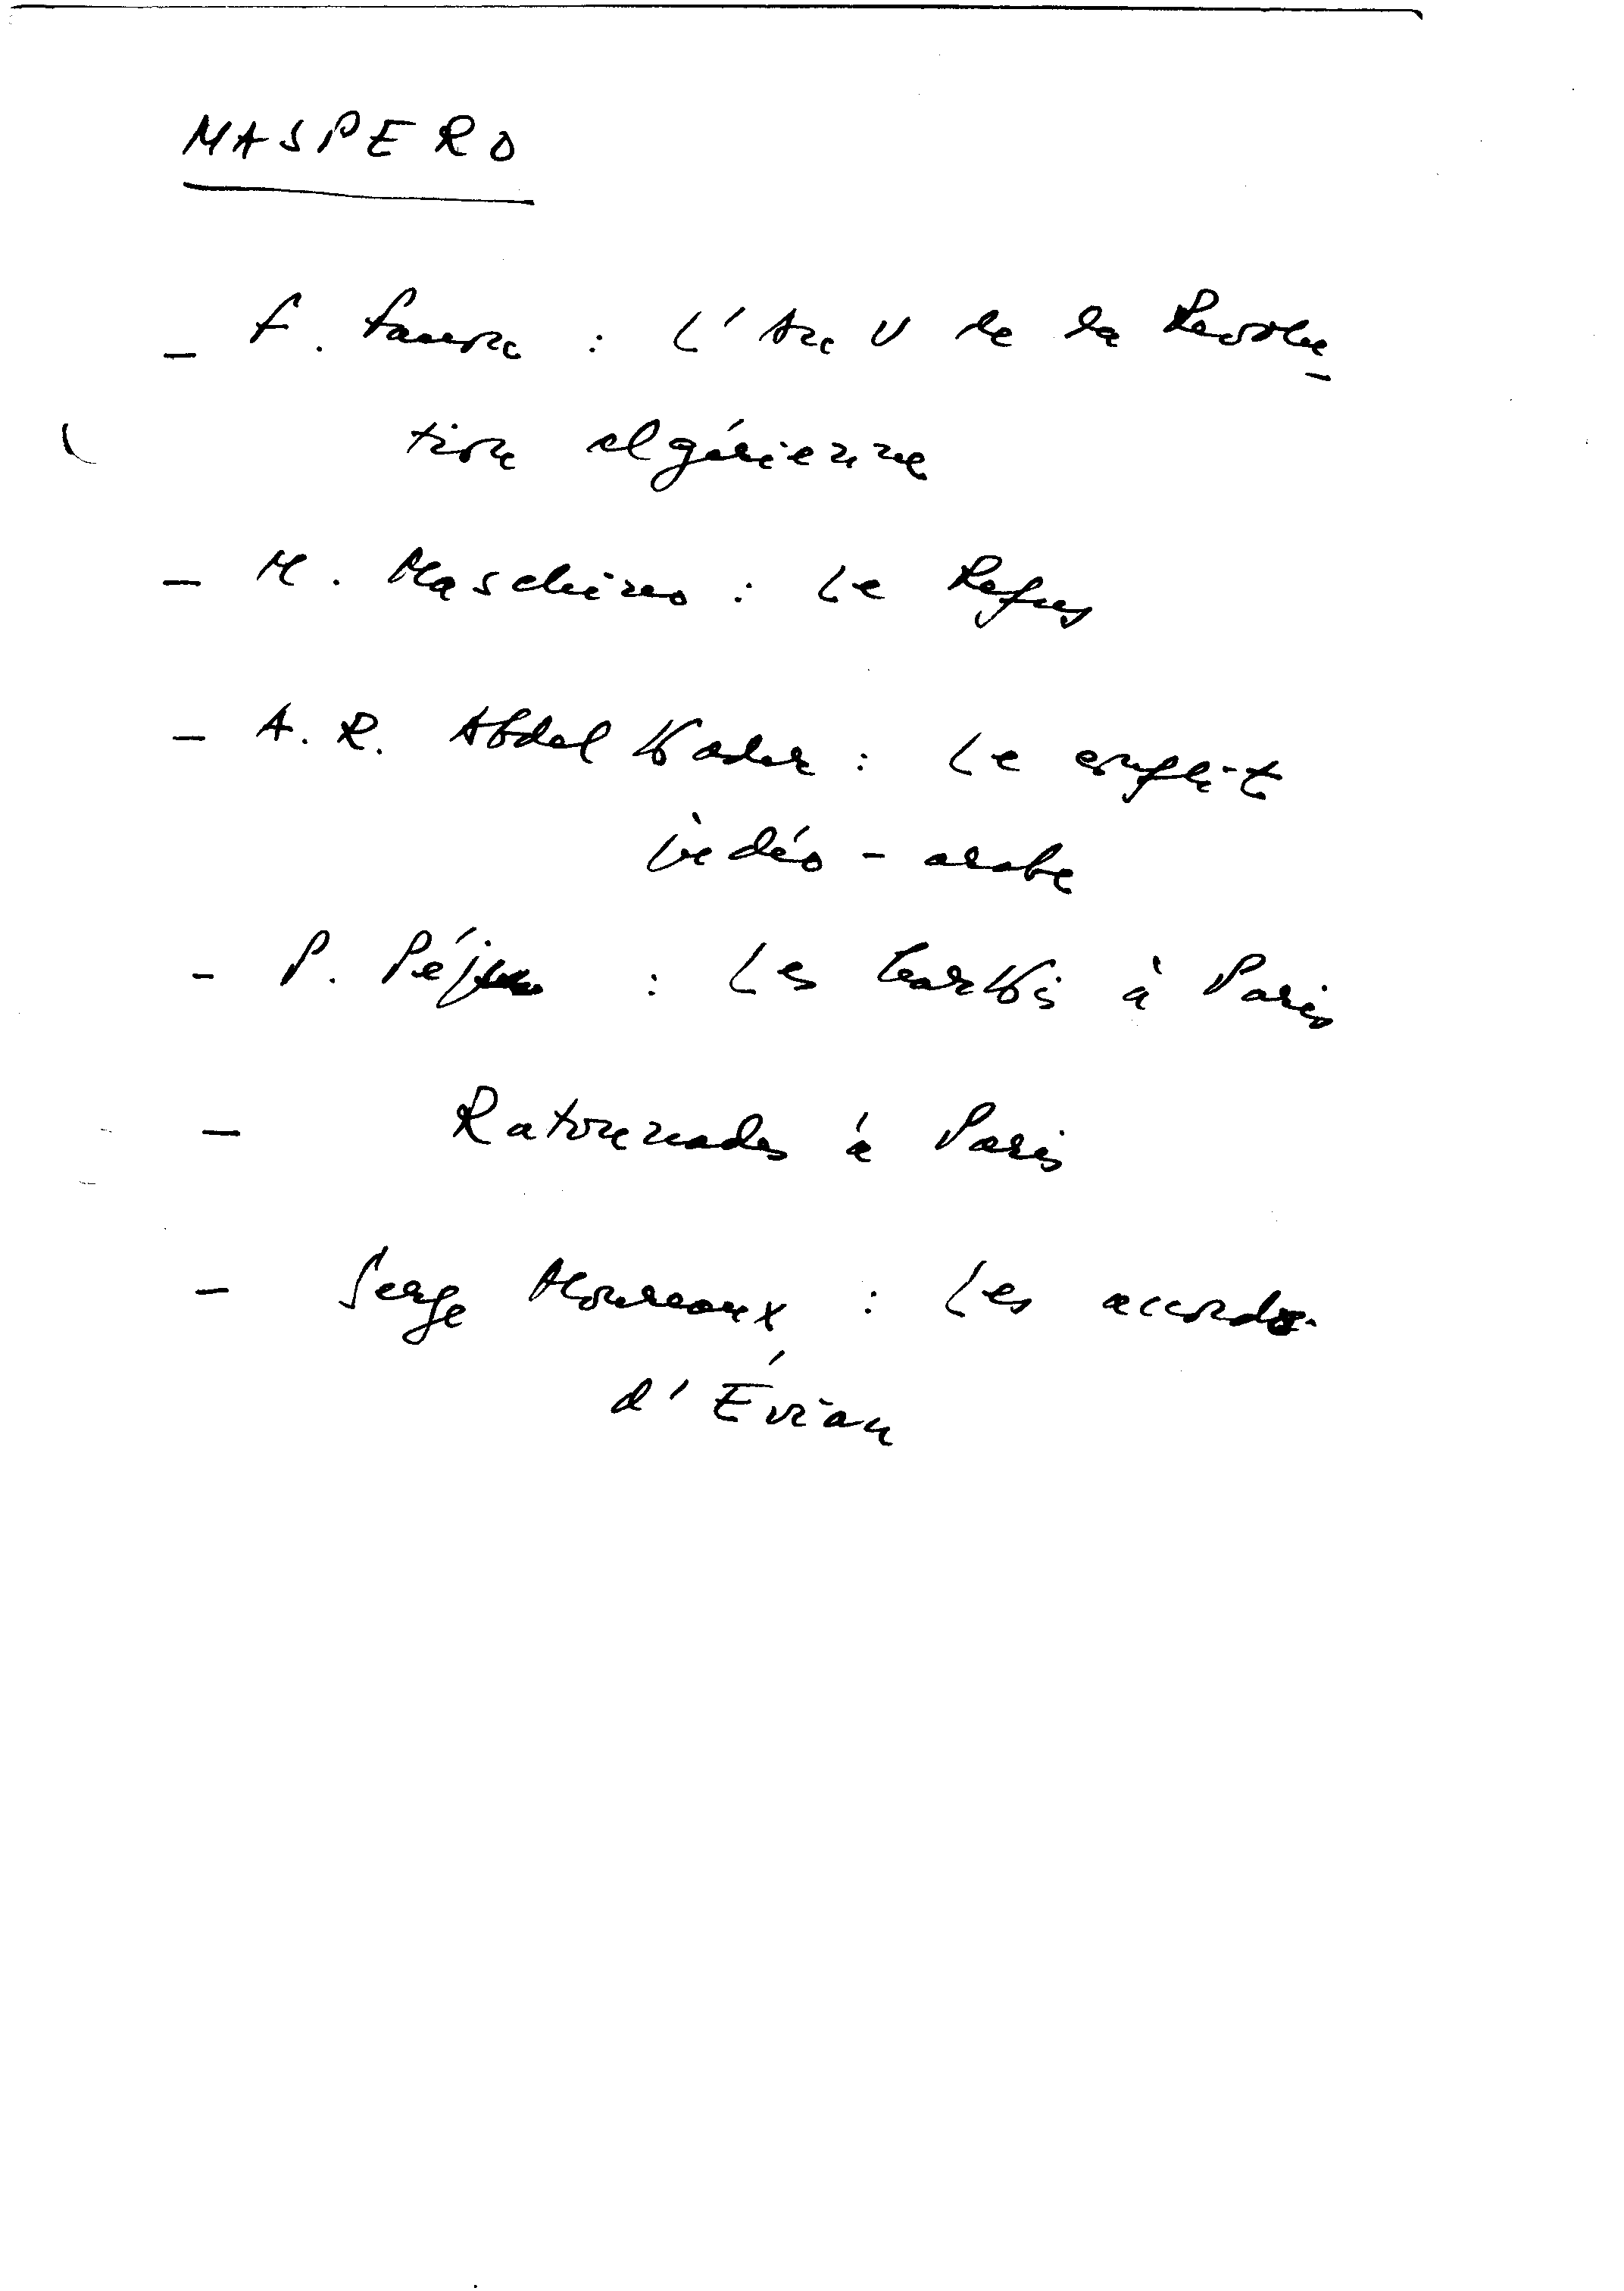 MASPERO
- F. Fanon : L'An V de la Révolu-
tion algérienne
- M. Maschino : Le Refus
- A. R. Abdel Kader : Le conflit
judéo - arabe
- P. Péju : Les harkis à Paris
- Ratonnades à Paris
- Serge Moureaux : Les accords
d'Évian